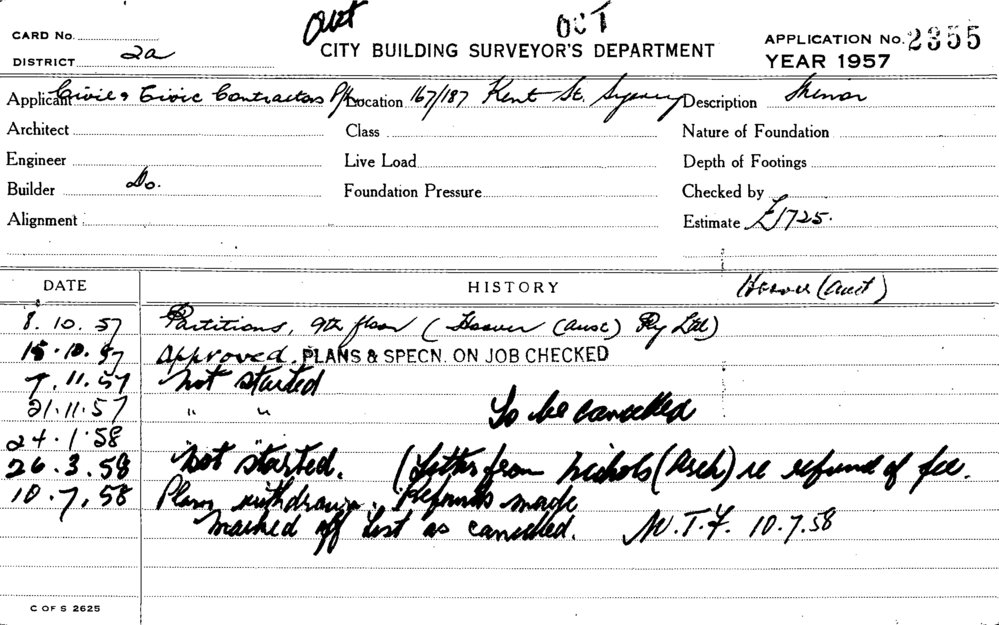 Out OCT
CARD No.
CITY BUILDING SURVEYOR'S DEPARTMENT
APPLICATION No. 2355
DISTRICT 2a
YEAR 1957
Applicant Civil & Civic Contractors P/L Location 167/187 Kent St. Sydney Description
Architect Class Nature of Foundation
Engineer Live Load Depth of Footings
Builder Do. Foundation Pressure Checked by
Alignment Estimate £1725.
DATE HISTORY Hoover (Aust)
8.10.57 Partitions, 9th floor (Hoover (Aust) Pty Ltd)
15.10.57 Approved. PLANS & SPECN. ON JOB CHECKED
7.11.57 Not started
21.11.57 " " To be cancelled
24.1.58 " "
26.3.58 Not started. (Letter from Nichols (Arch) re refund of fee.
10.7.58 Plans withdrawn. Refunds made
marked off List as cancelled. 10.7.58
C OF S 2625